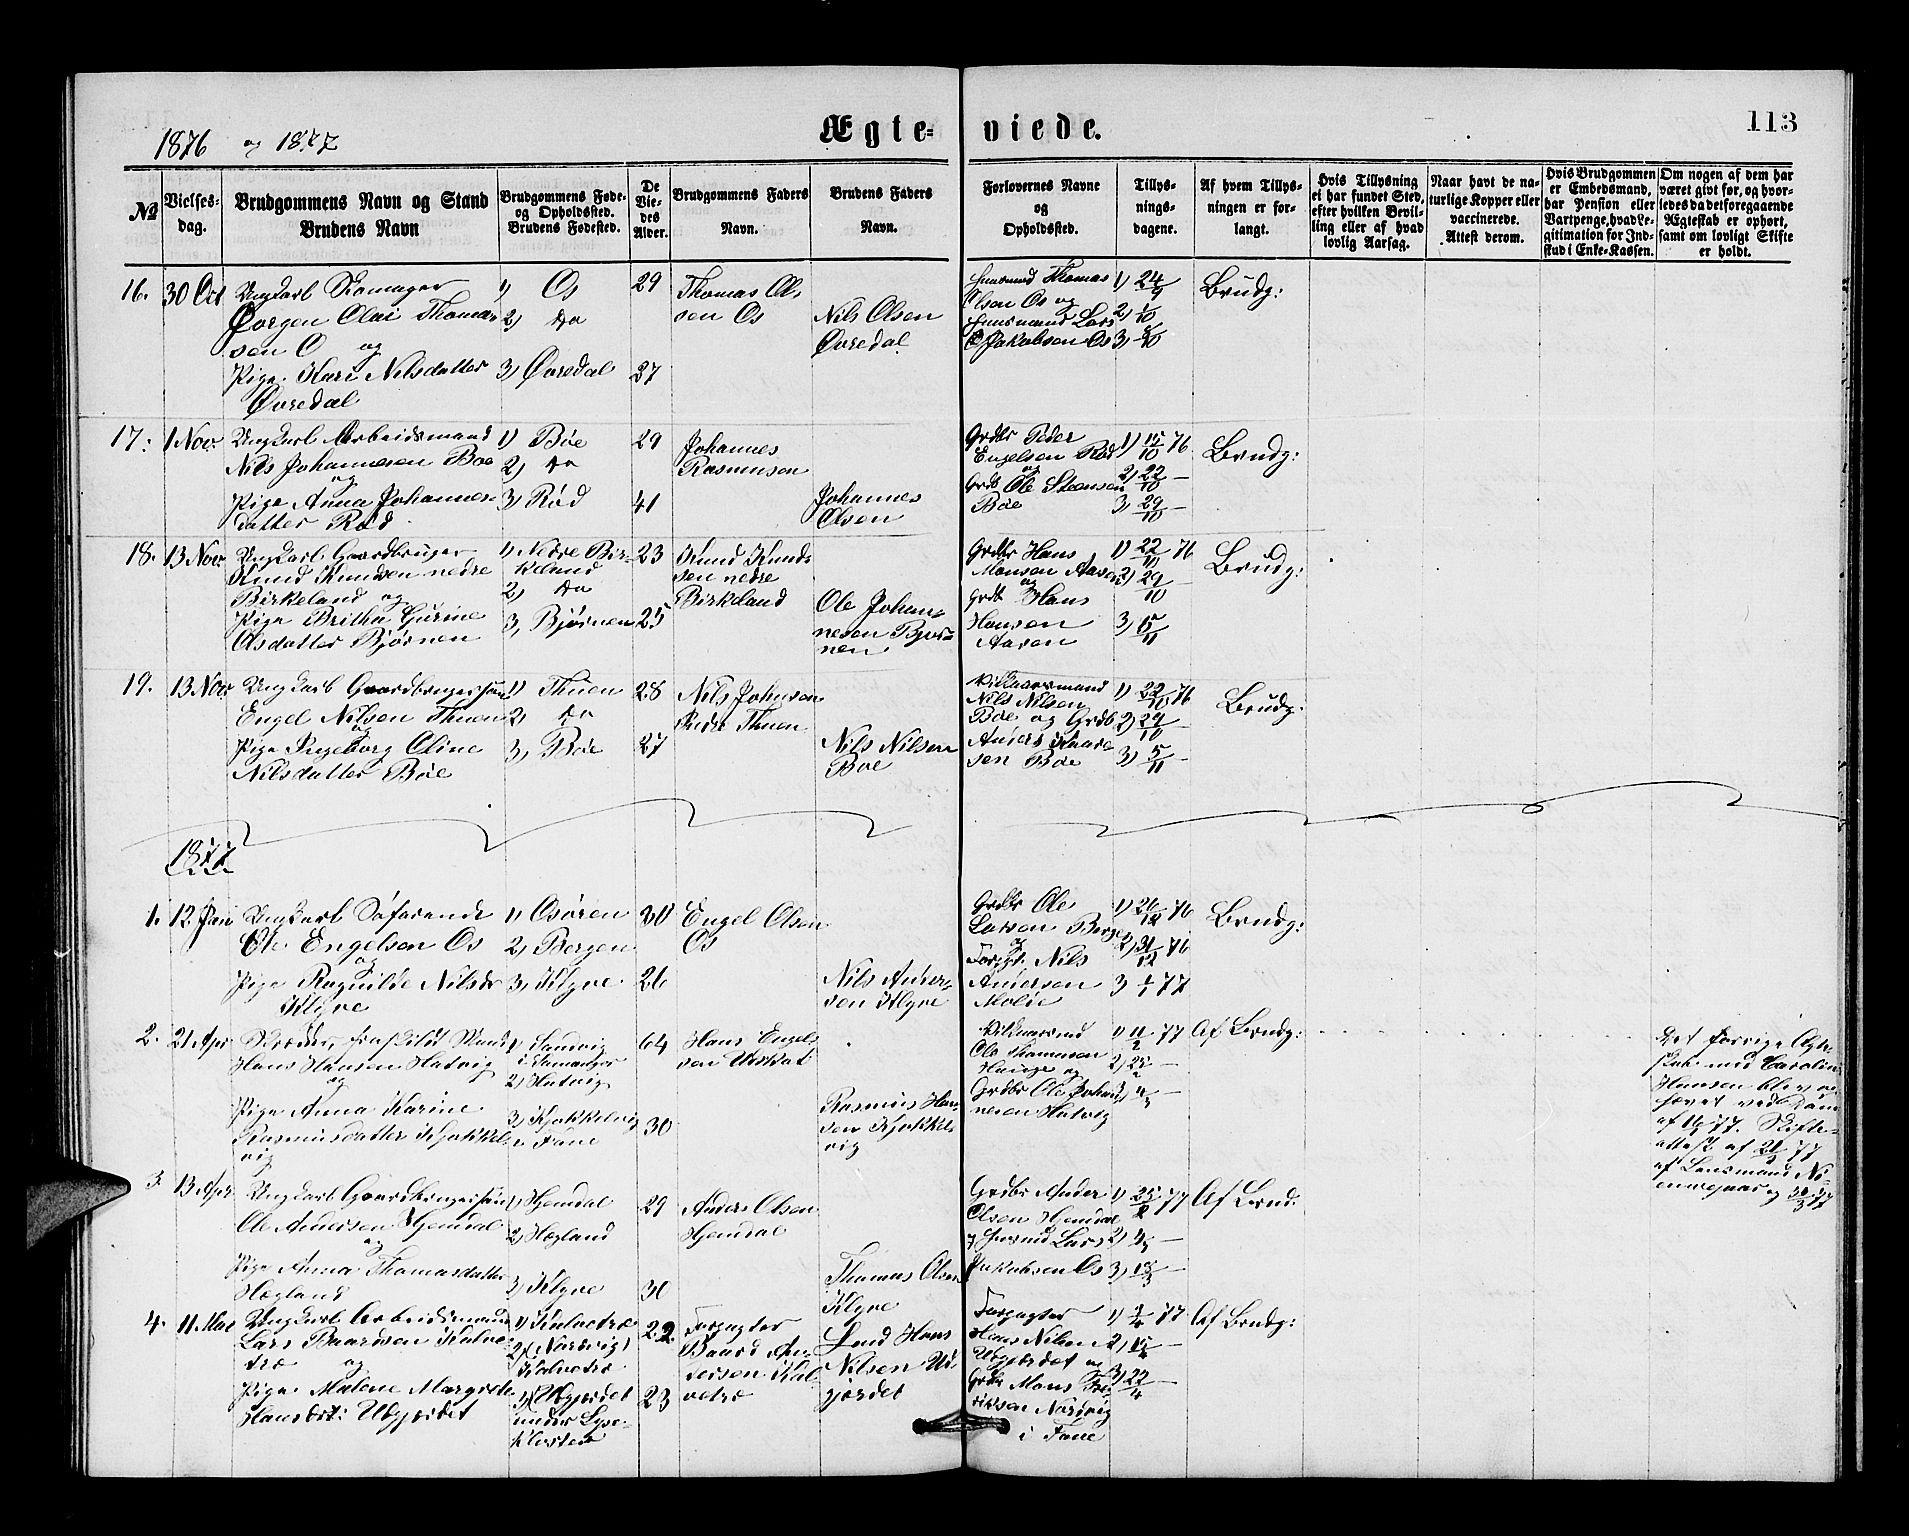 1876 og 1877
Ægte-viede.
113
№
Vielses-
dag.
Brudgommens Navn og Stand
Brudens Navn
Brudgommens Føde-
og Opholdssted.
Brudens Fødested.
De
Vie-
des
Alder.
Brudgommens Faders
Navn.
Brudens Faders
Navn.
Forlovernes Navne
og
Opholdssted.
Tillys-
nings-
dagene.
Af hvem Tillys-
ningen er for-
langt.
Hvis Tillysning
ei har fundet Sted,
efter hvilken Bevil-
ling eller af hvad
lovlig Aarsag.
Naar havt de na-
turlige Kopper eller
vaccinerede.
Attest derom.
Hvis Brudgommen
er Embedsmand,
har Pension eller
Vartpenge, hvad Le-
gitimation for Ind-
skud i Enke-Kassen.
Om nogen af dem har
været gift før, og hvor-
ledes da det foregaaende
Ægteskab er ophørt,
samt om lovligt Skifte
er holdt.
16.
30 Oct
Ungkarl Skomager
Jørgen Olai Thomas-
sen O og
Pige Kari Nilsdatter
Øvredal
1) Os
2) do
3) Øvredal
29
37
Thomas Ol-
sen Os
Nils Olsen
Øvredal
Huusmd Thomas
Olsen Os og
Huusmand Lars
Jakobsen Os
1) 24/9
2) 1/10
3) 8/10
Brudg:
17.
1 Nov.
Ungkarl Arbeidsmand
Nils Johannesen Bøe
og
Pige Anna Johannes-
datter Rød
1) Bøe
2) do
3) Rød
29
41
Johannes
Rasmussen
Johannes
Olsen
Grdbr Peder
Engelsen Rød
og
Grdb Ole Steensen
Bøe
1) 15/10 76
2) 22/10 —
3) 29/10 —
Brudg:
18.
13 Nov.
Ungkarl Gaardbruger
Knud Knudsen nedre
Birkeland og
Pige Britha Gurine
Olsdatter Bjørnen
1) Nedre Bir-
keland
2) do
3, Bjørnen
23
25
Knud Knud-
sen nedre
Birkeland
Ole Johan-
nesen Bjør-
nen.
Grdbr Hans
Monsen Aasen
og
Grdb Hans
Hansen
Aasen
1) 22/10 76
2) 29/10
3) 15/11
Brudg:
19.
13 Nov.
Ungkarl Gaardbrugersøn
Engel Nilsen Thuen
og
Pige Ingeborg Oline
Nilsdatter Bøe
1) Thuen
2, do
3, Bøe
28
27
Nils Johnsen
Thuen
Nils Nilsen
Boe
Vilkaarsmand
Nils Nilsen
Bøe og Grdb
Anders
sen Bøe
1) 22/10 76
2) 29/10
3) 5/11 —
Brudg:
1877
1.
12 Jan
Ungkarl Søfarende
Ole Engelsen Os
og
Pige Ragnilde Nilsdr
Klyve
1) Osøren
2, Bergen
3, Klyve
30
26
Engel Olsen
Os
Nils Ander-
sen Klyve
Grdbr Ole
Larsen Berge
og
Forpgt. Nils
Andersen
1) 26/12 76
2) 31/12 76
3 1/1 77
Brudg:
2.
21 Apr
Skræder, fraskilt Mand
Hans Hansen Hatvig
og
Pige Anna Karine
Rasmusdatter Kjøkkel-
vig
1, Sandvig
i Samanger
2) Hatvig
3, Kjøkkelvig
i Fane
64
30
Hans Engel-
sen
Rasmus Han-
sen Kjøkkel-
vig
Vilkaarsmd
Ole Thommsen
Hauge og
Grdbr Ole Johan-
nesen Hatvig
1) 11/2 77
2) 25/2 —
3, 4/3 —
Af Brudg:
Det forrige Ægte-
skab med Carolin
Hansen blev op-
hævet ved Dom
af 77. Skifte-
attest af 21/3 77
af Lensmand
77
3.
13 Apr.
Ungkarl Gaardbrugersøn
Ole Andersen Hjemdal
og
Pige Anna Thomasdatter
Hegland
1) Hjemdal
2) Hegland
3) Klyve
29
30
Anders Olsen
Hjemdal
Thomas Olsen
Klyve
Grdbr Ander
Olsen Hjemdal
og Husmd Lars
Jakobsen Os
1) 25/2 77
2) 4/3 —
3) 18/3 —
Af Brud.
4.
11 Mai
Ungkarl Arbeidsmand
Lars Baardsen Kalve-
træ og
Pige Malene Margrete
Hansdatr: Udgjerdet
1) Kalvetræ
2) (Nordvig)
Kalvetræ
3) Udgjerdet
under Lyse-
kloster
22
23
Forpagter
Baard An-
dersen Kal-
vetræ
Hans
Nilsen Ud-
gjerdet
Forpagter
Hans Nilsen
Udgjerdet og
Grdbr Mons Fre-
riksen Nordvig
i Fane
1) 2/4 77
2, 15/4 —
3) 22/4 —
Af Brudg: